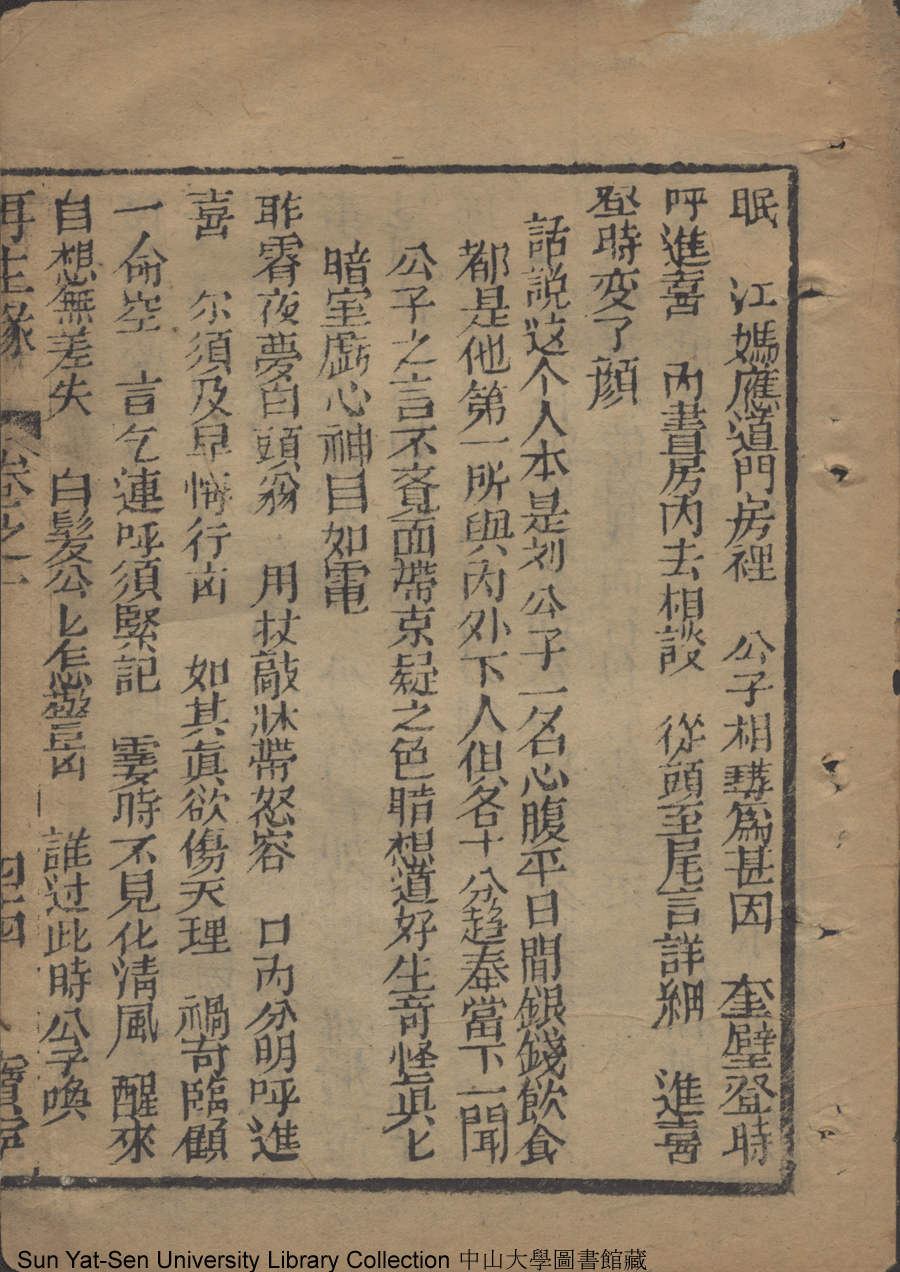 眠　江媽應道門房裡　公子相講為甚因　奎璧登時
呼進喜　內書房內去相談　從頭至尾言詳細　進喜
登時变了顏
話說这个人本是刘公子一名心腹平日間銀錢飲食
都是他第一所與內外下人但各十分趨奉當下一聞
公子之言不覓面帶京疑之色暗想道好生竒怪真匕
暗室虧心神目如電
昨宵夜夢白頭翁　用杖敲牀帶怒容　口內分明呼進
喜　尔須及早悔行凶　如其真欲傷天理　禍竒臨顧
一命空　言乞連呼須緊記　霎時不見化清風　醒來
自想無差失　白髮公匕怎警凶　誰过此時公子喚
再生緣　卷之一　四十四　寶寧
Sun Yat-Sen University Library Collection 中山大學圖書館藏